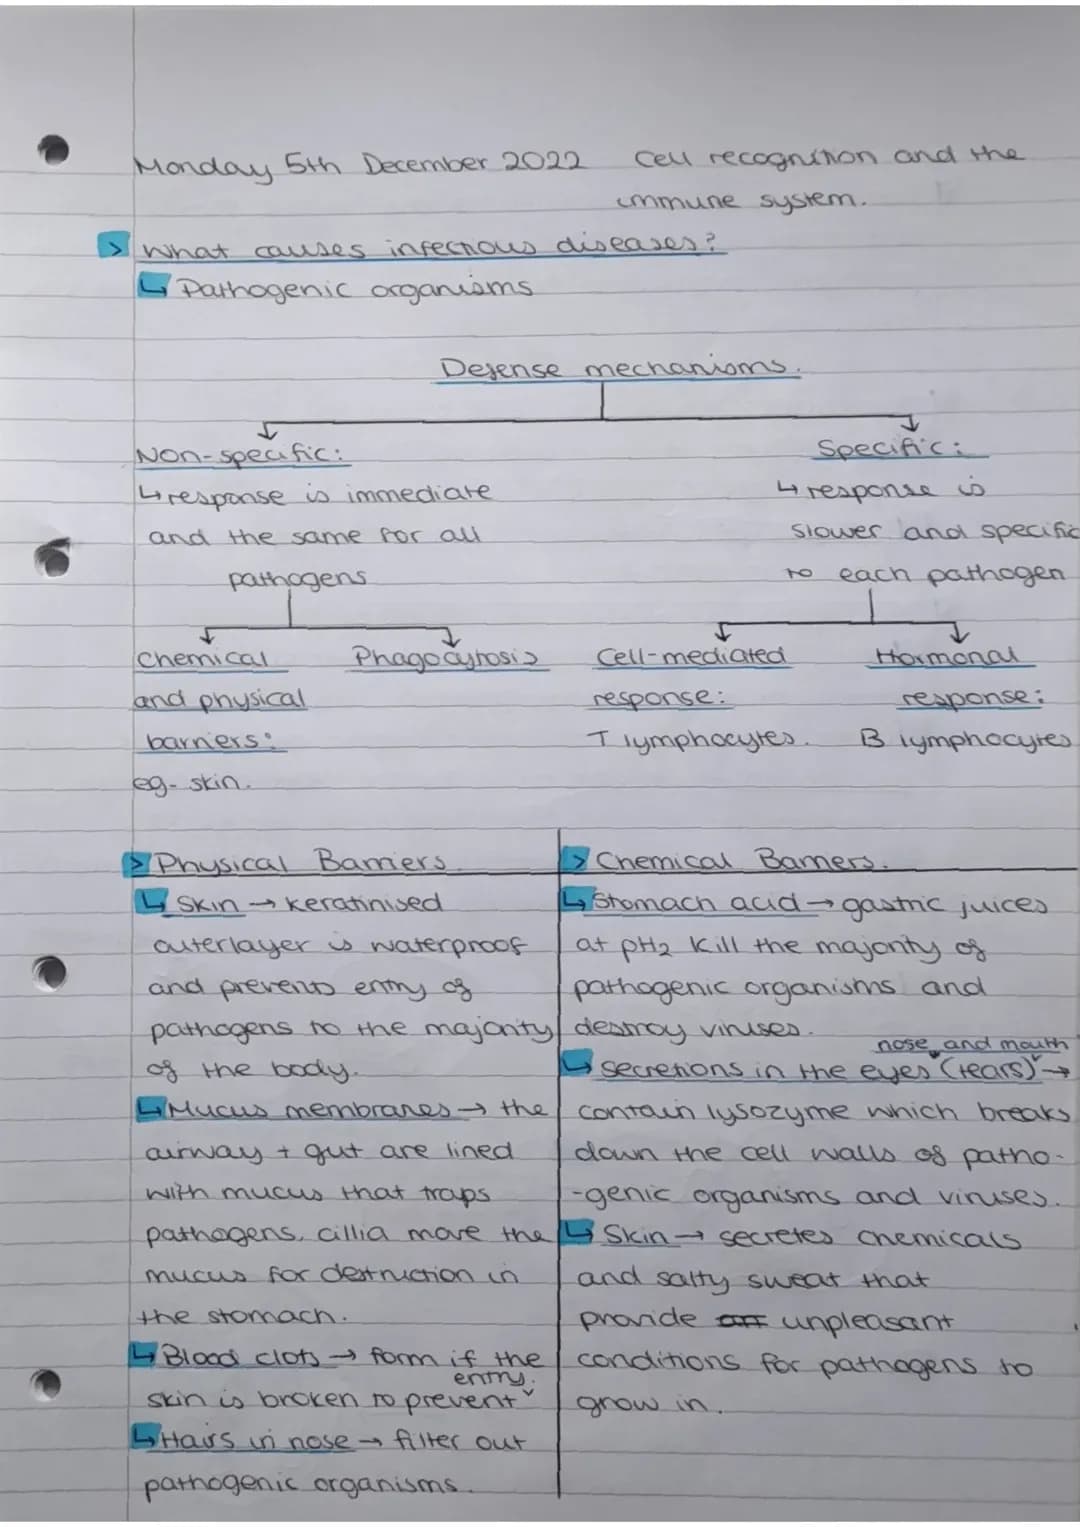 Monday 5th December 2022 Cell recognition and the
immune system.
> What causes infectious diseases?
↳ Pathogenic organisms
Defense mechanisms.
Non-specific:
↳ response is immediate
and the same for all
pathogens
Specific:
↳ response is
slower and specific
to each pathogen
Chemical
and physical
barriers:
eg- skin.
Phagocytosis
Cell-mediated
response:
T lymphocytes.
Hormonal
response:
B lymphocytes
> Physical Barriers
↳ Skin → keratinised
outerlayer is waterproof
and prevents entry of
pathogens to the majority
of the body.
↳ Mucus membranes → the
airway + gut are lined
with mucus that traps
pathogens, cillia move the
mucus for destruction in
the stomach.
↳ Blood clots → form if the
skin is broken to prevent entry.
↳ Hairs in nose → filter out
pathogenic organisms.
> Chemical Barriers.
↳ Stomach acid → gastric juices
at pH2 kill the majority of
pathogenic organisms and
destroy viruses.
↳ Secretions in the eyes (tears) nose and mouth →
contain lysozyme which breaks
down the cell walls of patho-
-genic organisms and viruses.
↳ Skin → secretes chemicals
and salty sweat that
provide unpleasant
conditions for pathogens to
grow in.